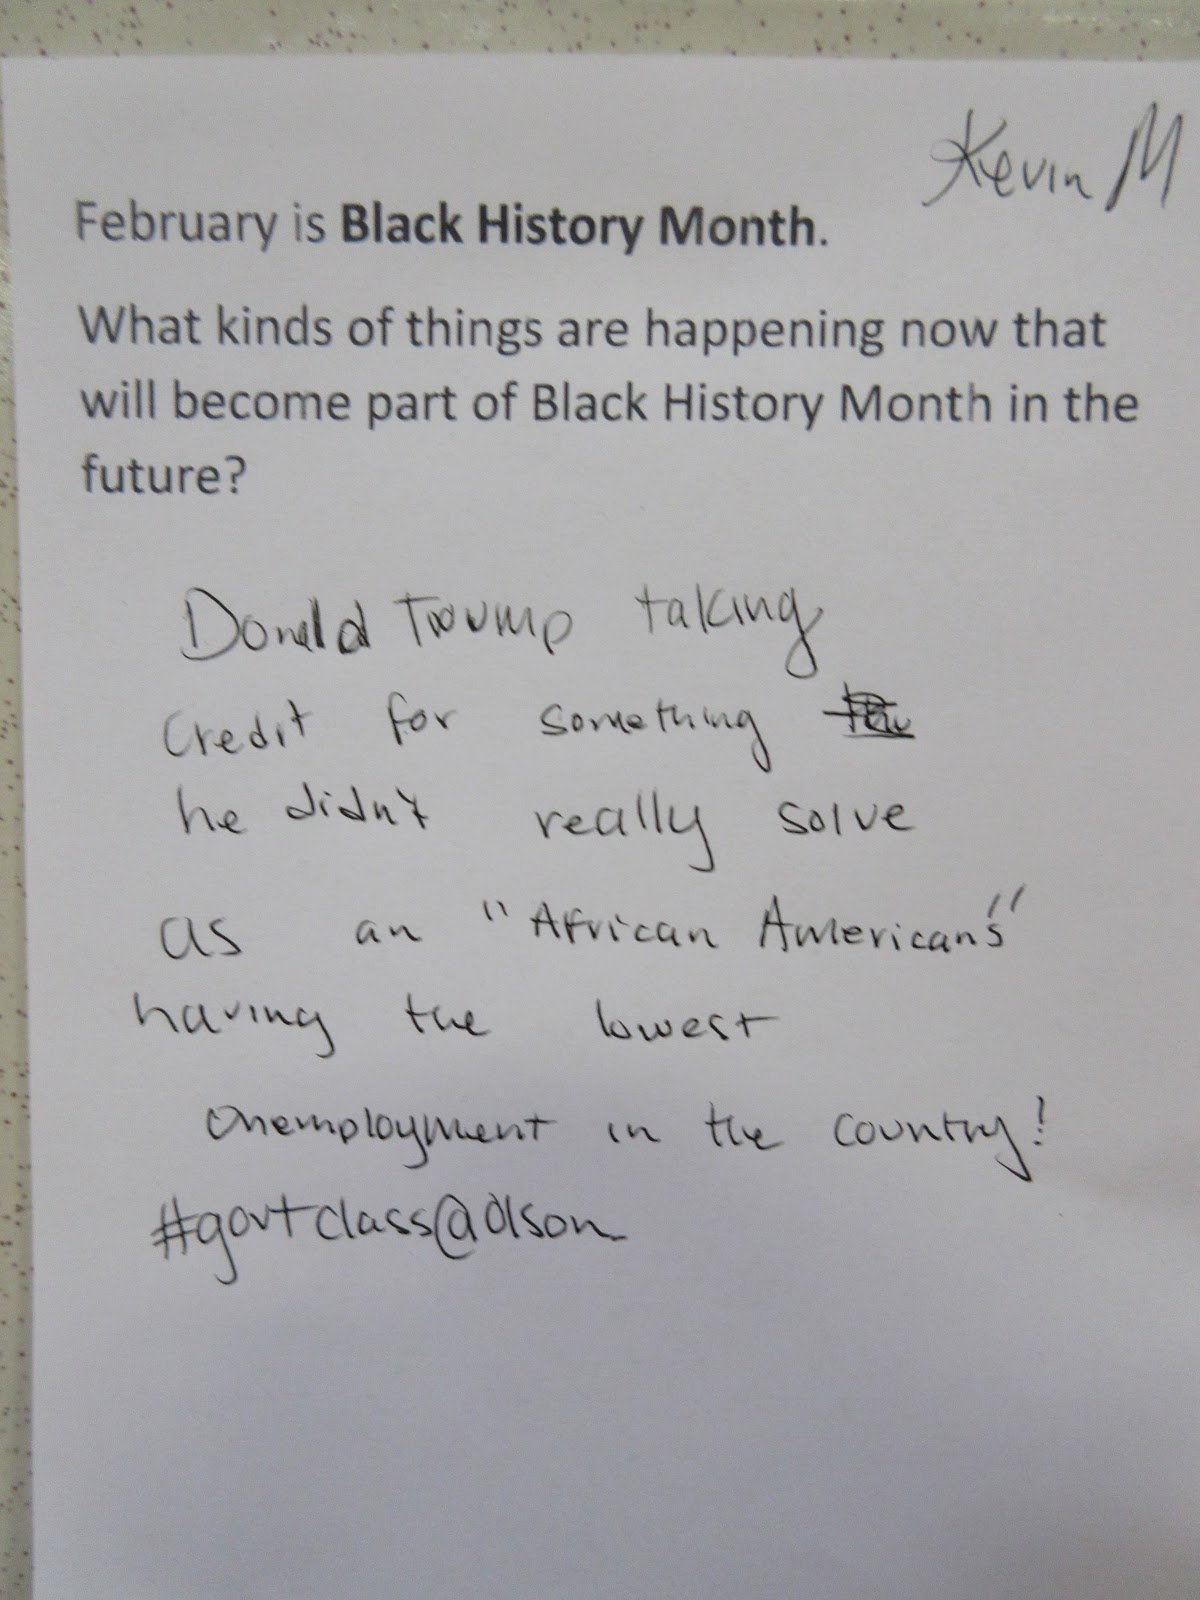 Kevin M
February is Black History Month.
What kinds of things are happening now that
will become part of Black History Month in the
future?
Donald Troump taking
Credit for something
he didn't really solve
as an "African American's"
having the lowest
Unemployment in the country!
#govtclass@olson